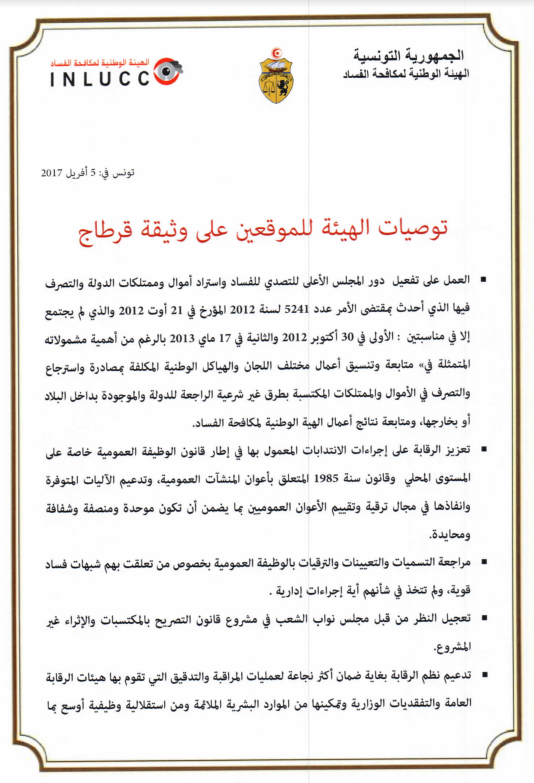 الجمهورية التونسية
الهيئة الوطنية لمكافحة الفساد
الهيئة الوطنية لمكافحة الفساد
INLUCC
تونس في: 5 أفريل 2017
توصيات الهيئة للموقعين على وثيقة قرطاج
▪ العمل على تفعيل دور المجلس الأعلى للتصدي للفساد واستراد أموال وممتلكات الدولة والتصرف
فيها الذي أحدث بمقتضى الأمر عدد 5241 لسنة 2012 المؤرخ في 21 أوت 2012 والذي لم يجتمع
إلا في مناسبتين : الأولى في 30 أكتوبر 2012 والثانية في 17 ماي 2013 بالرغم من أهمية مشمولاته
المتمثلة في» متابعة وتنسيق أعمال مختلف اللجان والهياكل الوطنية المكلفة بمصادرة واسترجاع
والتصرف في الأموال والممتلكات المكتسبة بطرق غير شرعية الراجعة للدولة والموجودة بداخل البلاد
أو بخارجها، ومتابعة نتائج أعمال الهية الوطنية لمكافحة الفساد.
▪ تعزيز الرقابة على إجراءات الانتدابات المعمول بها في إطار قانون الوظيفة العمومية خاصة على
المستوى المحلي وقانون سنة 1985 المتعلق بأعوان المنشآت العمومية، وتدعيم الآليات المتوفرة
وانفاذها في مجال ترقية وتقييم الأعوان العموميين بما يضمن أن تكون موحدة ومنصفة وشفافة
ومحايدة.
▪ مراجعة التسميات والتعيينات والترقيات بالوظيفة العمومية بخصوص من تعلقت بهم شبهات فساد
قوية، ولم تتخذ في شأنهم أية إجراءات إدارية .
▪ تعجيل النظر من قبل مجلس نواب الشعب في مشروع قانون التصريح بالمكتسبات والإثراء غير
المشروع.
▪ تدعيم نظم الرقابة بغاية ضمان أكثر نجاعة لعمليات المراقبة والتدقيق التي تقوم بها هيئات الرقابة
العامة والتفقديات الوزارية وتمكينها من الموارد البشرية الملائمة ومن استقلالية وظيفية أوسع بما